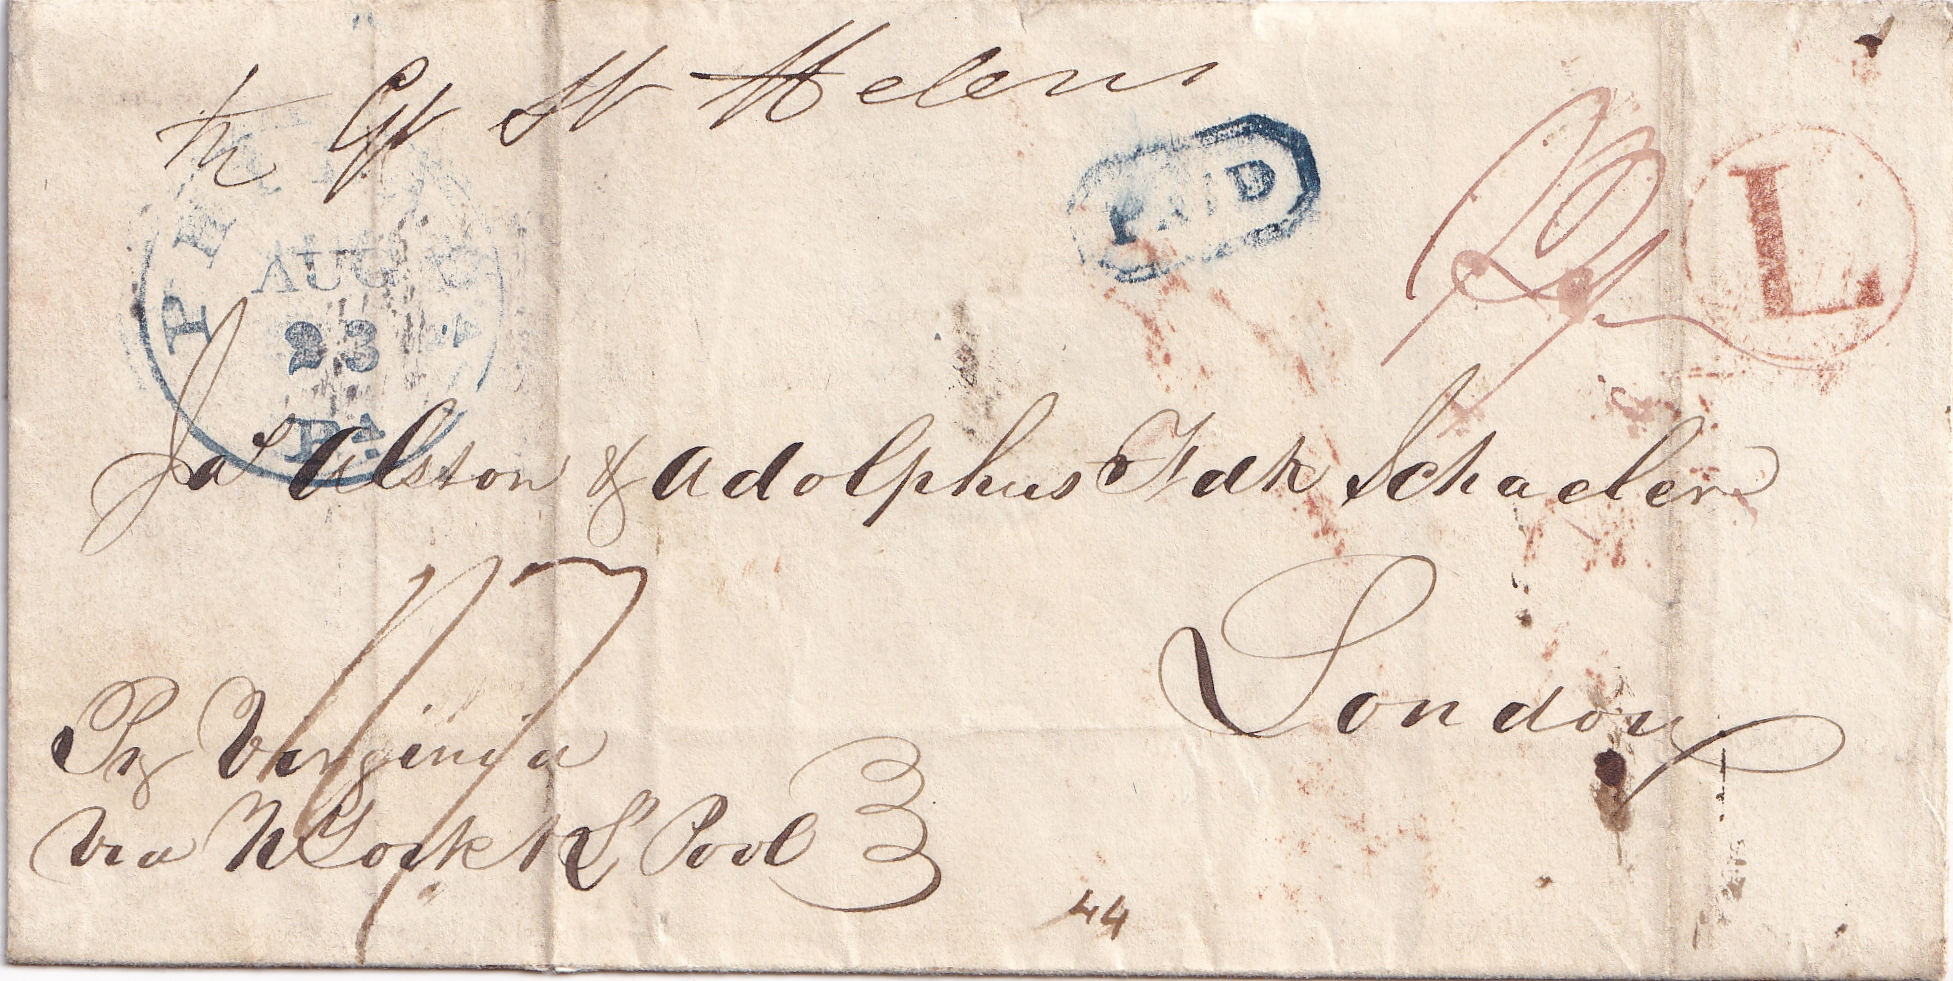 Gt St Helens
PAID
L
PHIL
AUG
23
Pa
Jas Alston & Adolphus Fdk Schaeler
London
Pr Virginia
via N York & L Pool
44